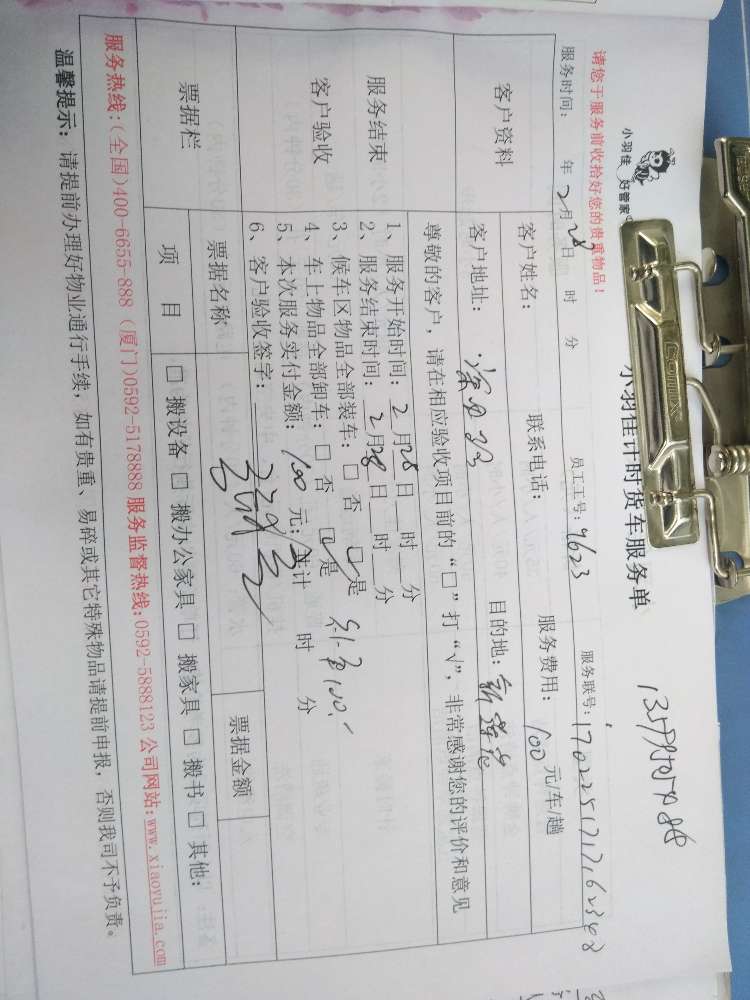 小羽佳 好管家
小羽佳计时货车服务单
请您于服务前收拾好您的贵重物品！
服务时间： 年 2月28日 时 分 员工工号：4623 服务联号：
客户资料
客户姓名： 联系电话： 服务费用：100 元/车/趟
客户地址： 目的地：
尊敬的客户，请在相应验收项目前的“□”打“√”，非常感谢您的评价和意见
服务结束
客户验收
1、服务开始时间：2月28日 时 分
2、服务结束时间：2月28日 时 分
3、候车区物品全部装车：□ 否 □是
4、车上物品全部卸车：□ 否 □是
5、本次服务实付金额：100 元；共计 时 分
6、客户验收签字：
票据栏
票据名称 票据金额
项 目 □ 搬设备 □ 搬办公家具 □ 搬家具 □ 搬书 □ 其他：
服务热线：(全国)400-6655-888 (厦门)0592-5178888 服务监督热线:0592-5888123 公司网站:www.xiaoyujia.com
温馨提示：请提前办理好物业通行手续，如有贵重、易碎或其它特殊物品请提前申报，否则我司不予负责。